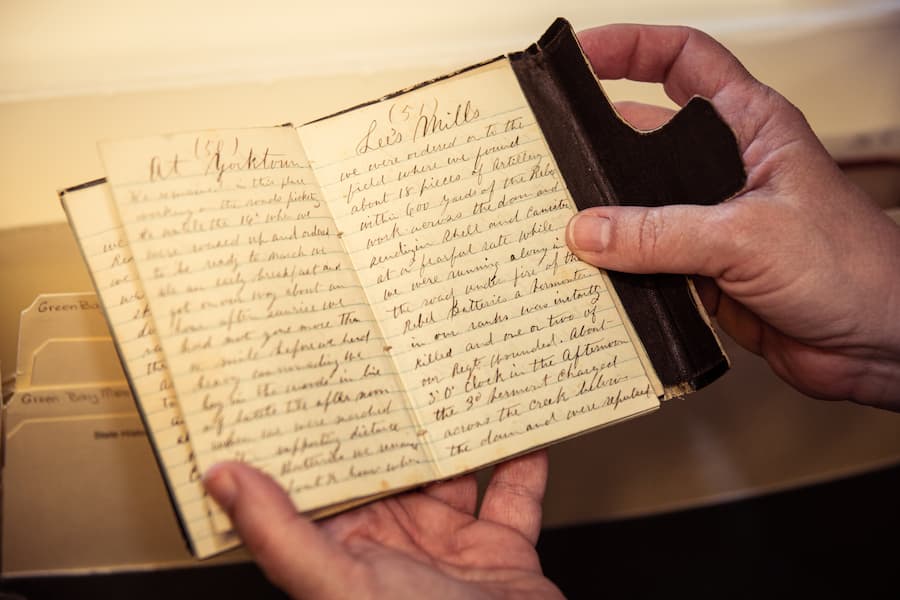 (50)
At Yorktown
We remained in this place
working on the roads picketing
&c untile the 16th when we
were wacked up and orders
to be ready to march we
ate an early breakfast and
got on our way about an
hour after sunrise we
had not gone more than
a mile before we heard
heavy cannonading we
lay in the woods in line
of battle till after noon
when we were marched
supporting distance
Batteries we remained
about ½ hour when
(51)
Lee's Mills
we were ordered on to the
field where we found
about 18 pieces of Artillery
within 600 yards of the Rebs
work across the dam and
sendzin shell and Canister
at a fearful rate while
we were running along in
the road under fire of the
Rebel Batteries a Vermonter
in our ranks was instantly
killed and one or two of
our Regt wounded. About
3 O' Clock in the Afternoon
the 3d Vermont Charged
across the creek below
the dam and were repulsed
Green Bay
Green Bay